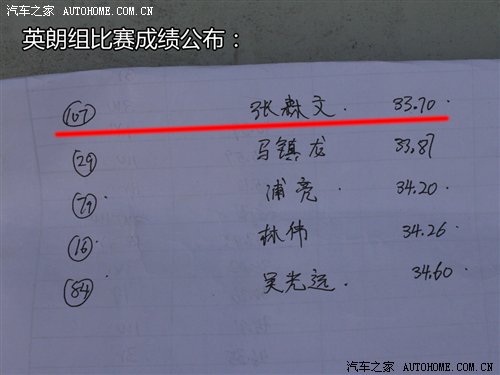 汽车之家 | AUTOHOME.COM.CN
英朗组比赛成绩公布：
107 张森文. 33.70.
29 马镇龙 33.87
79 浦亮. 34.20.
16 林伟 34.26.
84 吴光远. 34.60.
汽车之家 AUTOHOME.COM.CN